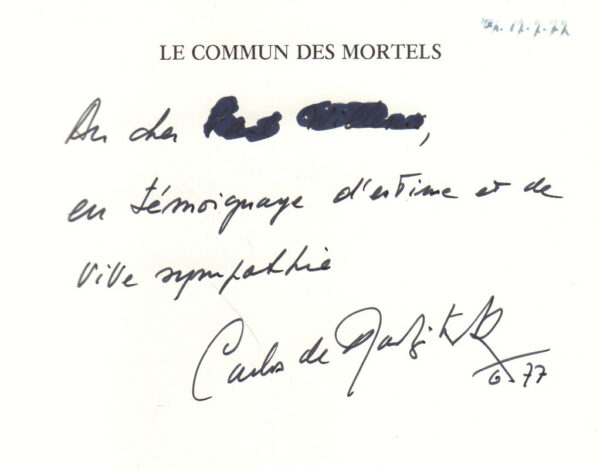 12-7-77
LE COMMUN DES MORTELS
Au cher
en témoignage d'estime et de
vive sympathie
Carlos de Radzitzky
6-77